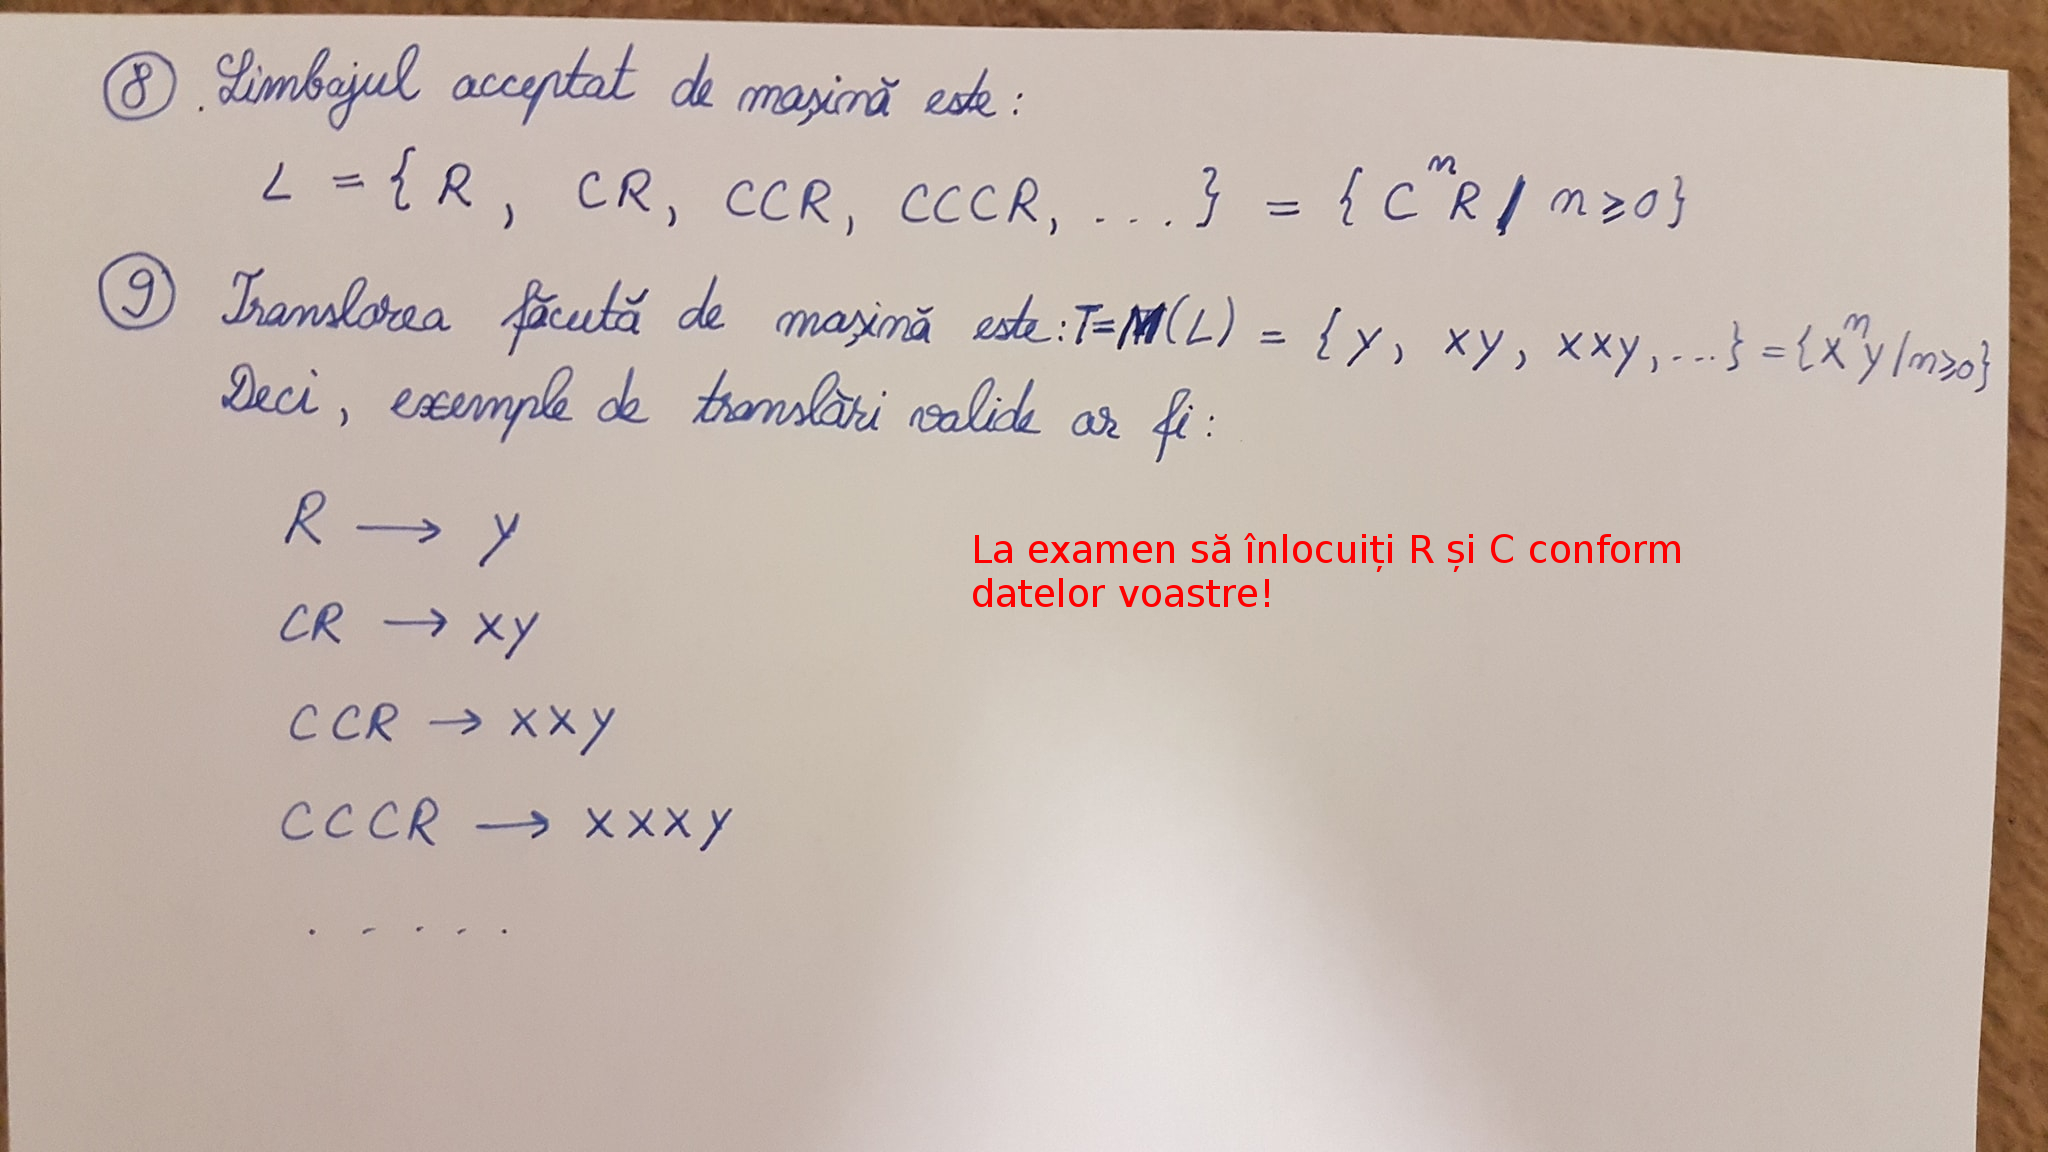 8. Limbajul acceptat de mașină este:
L = { R, CR, CCR, CCCR, ... } = { CⁿR / n ≥ 0}
9 Translarea făcută de mașină este: T=M(L) = { y, xy, xxy, ...} = {xⁿy / n≥0}
Deci, exemple de translări valide ar fi:
R → y
La examen să înlocuiți R și C conform
datelor voastre!
CR → xy
CCR → xxy
CCCR → xxxy
. . . . .